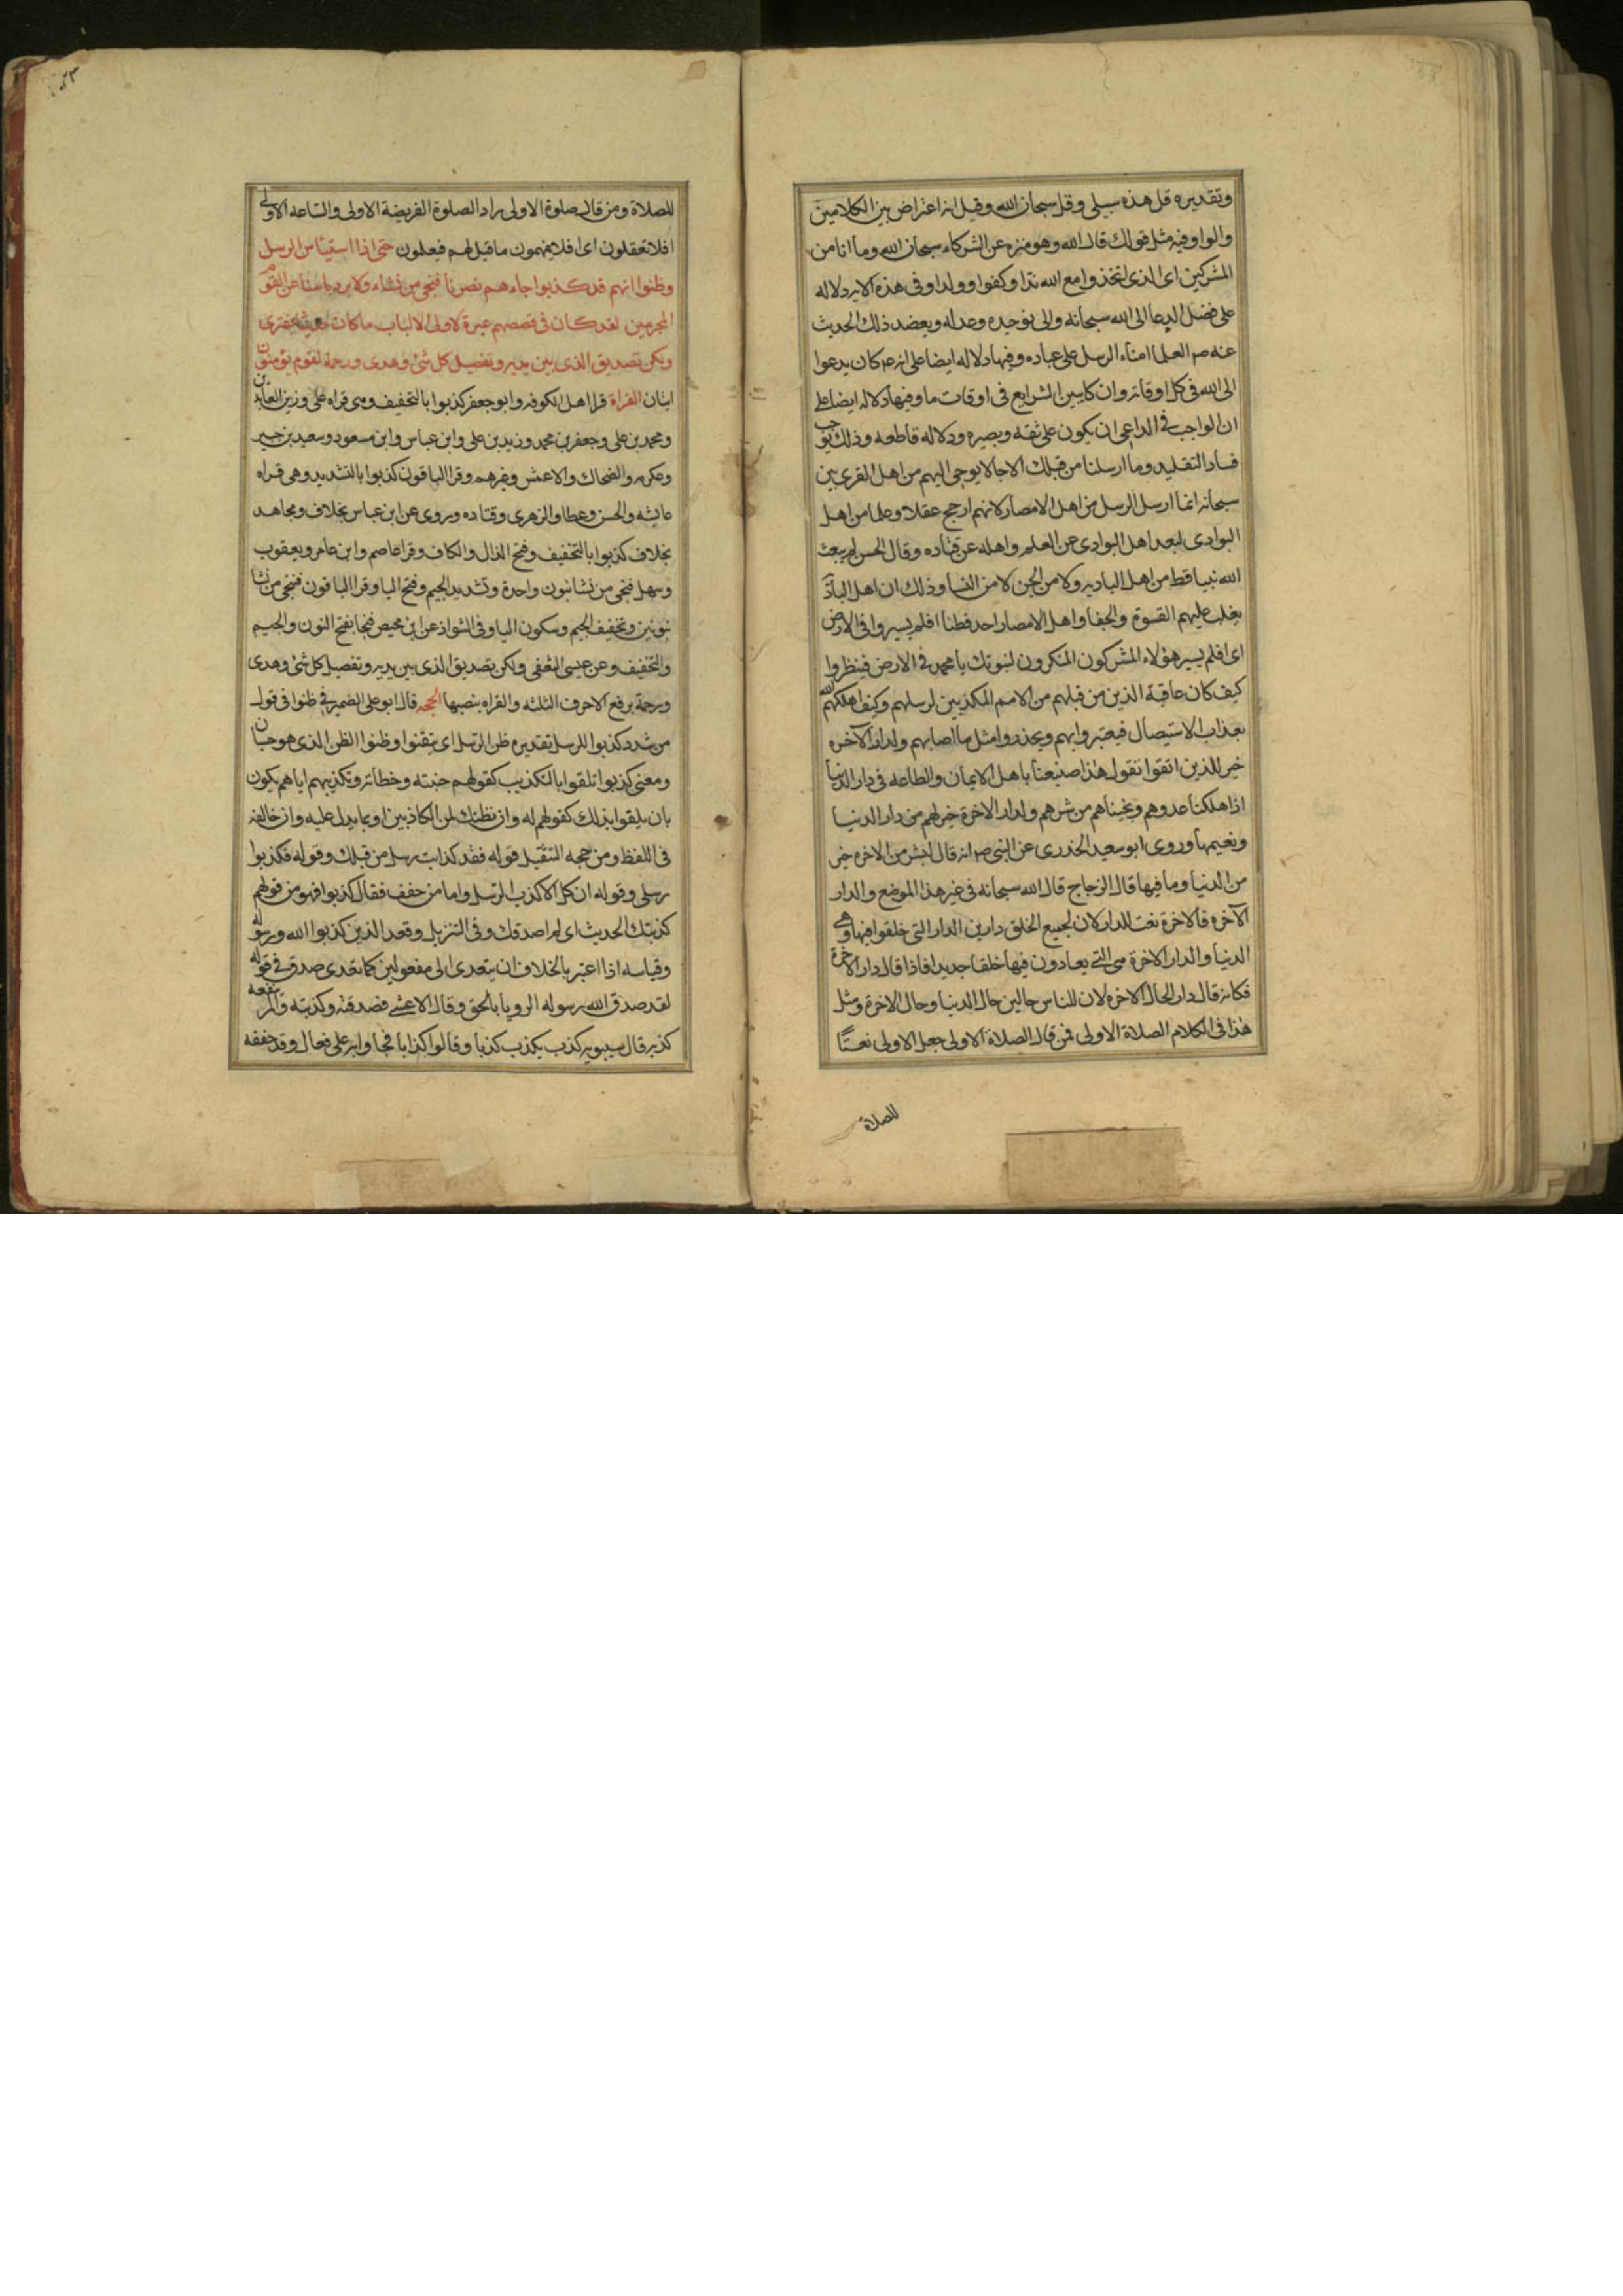 وتقديره قل هذه سبيلى وقل سبحان الله وقيل انه اعتراض بين الكلامين
والواو فيه مثل قولك قال الله وهو منزه عن الشركاء سبحان الله وما انا من
المشركين اى الذى اتخذوا مع الله ندا وكفوا وولدا وفى هذه الايه دلاله
على فضل الدعا الى الله سبحانه والى توحيده وعدله ويعضد ذلك الحديث
عنه صم العلما امناء الرسل على عباده وفيها دلاله ايضا على انه عم كان يدعوا
الى الله فى كل اوقاته وان كان يبين الشرايع فى اوقات ما وفيها دلاله ايضا على
ان الواجب فى الداعى ان يكون على ثقه وبصيره ودلاله قاطعه وذلك يوجب
فساد التقليد وما ارسلنا من قبلك الا رجالا يوحى اليهم من اهل القرى بين
سبحانه انما ارسل الرسل من اهل الامصار لانهم ارجح عقلا وعلما من اهل
البوادى لبعد اهل البوادى عن العلم واهله عن قتاده وقال الحسن لم يبعث
الله نبيا قط من اهل الباديه ولا من الجن لا من النسا وذلك ان اهل الباديه
يغلب عليهم القسوة والجفا واهل الامصار احد فطنا افلم يسيروا فى الارض
اى افلم يسير هؤلاء المشركون المنكرون لنبوتك يا محمد فى الارض فينظروا
كيف كان عاقبة الذين من قبلهم من الامم المكذبين لرسلهم وكيف اهلكهم الله
بعذاب الاستيصال فيعتبروا بهم ويحذروا مثل ما اصابهم ولدار الآخره
خير للذين اتقوا تقول هذا صنيعنا باهل الايمان والطاعه فى دار الدنيا
اذا هلكنا عدوهم ونجيناهم من شرهم ولدار الاخرة خير لهم من دار الدنيا
ونعيمها وروى ابو سعيد الخدرى عن النبى صم انه قال لشبر من الاخره خير
من الدنيا وما فيها قال الزجاج قال الله سبحانه فى غير هذا الموضع والدار
الآخره فالاخرة نعت للدار لان لجميع الخلق دارين الدار التى خلقوا فيها وهى
الدنيا والدار الاخرة هى التى يعادون فيها خلقا جديدا فاذا قال دار الاخرة
فكانه قال دار الحال الاخره لان للناس حالين حال الدنيا وحال الاخرة ومثل
هذا فى الكلام الصلاة الاولى فمن قال الصلاة الاولى جعل الاولى نعتًا
للصلاة
للصلاة ومن قال صلوة الاولى اراد الصلوة الفريضة الاولى والساعه الاولى
افلا تعقلون اى افلا يفهمون ما قيل لهم فيعلمون حتى اذا استيئاس الرسل
وظنوا انهم قد كذبوا جاءهم نصرنا فنجى من نشاء ولا يرد باسنا عن القوم
المجرمين لقد كان فى قصصهم عبرة لاولى الالباب ما كان حديثا يفترى
ولكن تصديق الذى بين يديه وتفصيل كل شئ وهدى ورحمة لقوم يؤمنون
ايتان القراة قرا اهل الكوفه وابو جعفر كذبوا بالتخفيف وهى قراه على وزين العابدين
ومحمد بن على وجعفر بن محمد وزيد بن على وابن عباس وابن مسعود وسعيد بن جبير
وعكرمه والضحاك والاعمش وغيرهم وقرا الباقون كذبوا بالتشديد وهى قراه
عايشه والحسن وعطا والزهرى وقتاده وروى عن ابن عباس بخلاف ومجاهد
بخلاف كذبوا بالتخفيف وفتح الذال والكاف وقرا عاصم وابن عامر ويعقوب
وسهل فنجى من نشا بنون واحدة وتشديد الجيم وفتح اليا وقرا الباقون فننجى من نشا
بنونين وتخفيف الجيم وسكون اليا وفى الشواذ عن ابن محيصن فنجا بفتح النون والجيم
والتخفيف وعن عيسى الثقفى ولكن تصديق الذى بين يديه وتفصيل كل شئ وهدى
ورحمة برفع الاحرف الثلثه والقراه بنصبها الحجه قال ابو على الضمير فى ظنوا فى قول
من شدد كذبوا للرسل تقديره ظن الرسل اى تيقنوا وظنوا الظن الذى هو حسبان
ومعنى كذبوا تلقوا بالتكذيب كقولهم حنيته وخطاته وتكذيبهم اياهم يكون
بان يلقوا بذلك كقولهم له وان نظنك لمن الكاذبين او بما يدل عليه وان خالفه
فى اللفظ ومن حجه التثقيل قوله فقد كذبت رسل من قبلك وقوله فكذبوا
رسلى وقوله ان كل الا كذب الرسل واما من خفف فقال كذبوا فهو من قولهم
كذبتك الحديث اى لم اصدقك وفى التنزيل وقعد الذين كذبوا الله ورسوله
وقياسه اذا اعتبر بالخلاف ان يتعدى الى مفعولين كما تعدى صدق فى قوله
لقد صدق الله رسوله الرويا بالحق وقال الاعشى فصدقته وكذبته والمر ينفعه
كذبه قال سيبويه كذب يكذب كذبا وقالوا كذابا فجاوا به على فعال وقد خففه